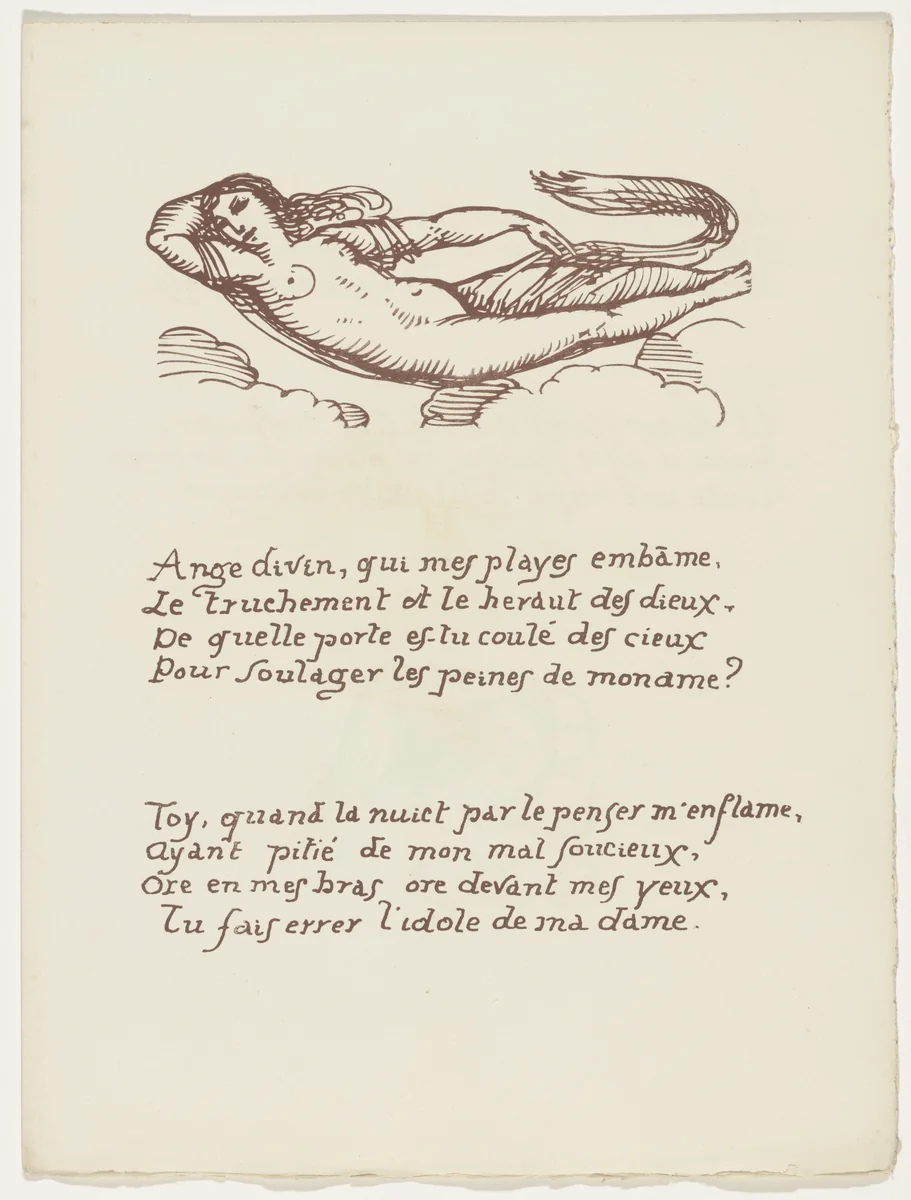 Ange divin, qui mes playes embâme,
Le truchement et le heraut des dieux,
De quelle porte es-tu coulé des cieux
Pour soulager les peines de mon ame?
Toy, quand la nuict par le penser m'enflame,
Ayant pitié de mon mal soucieux,
Ore en mes bras, ore devant mes yeux,
Tu fais errer l'idole de ma dame.